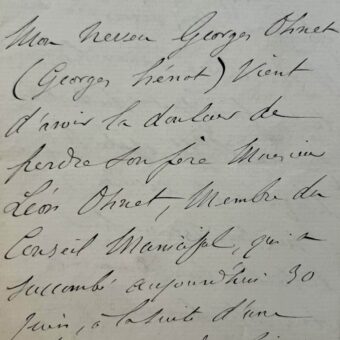 Mon neveu Georges Ohnet
(Georges Hénot) vient
d'avoir la douleur de
perdre son père Monsieur
Léon Ohnet, Membre du
Conseil Municipal, qui a
succombé aujourd'hui 30
juin, à la suite d'une